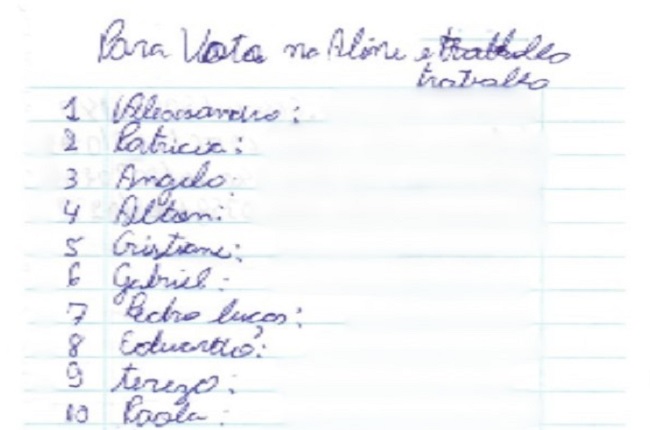 Para Vota na Aline e trabalho
trabalho
1 Alessandro:
2 Patricia:
3 Angelo
4 Ailton:
5 Cristiane:
6 Gabriel:
7 Pedro Lucas:
8 Eduardo:
9 terezo:
10 Paola: